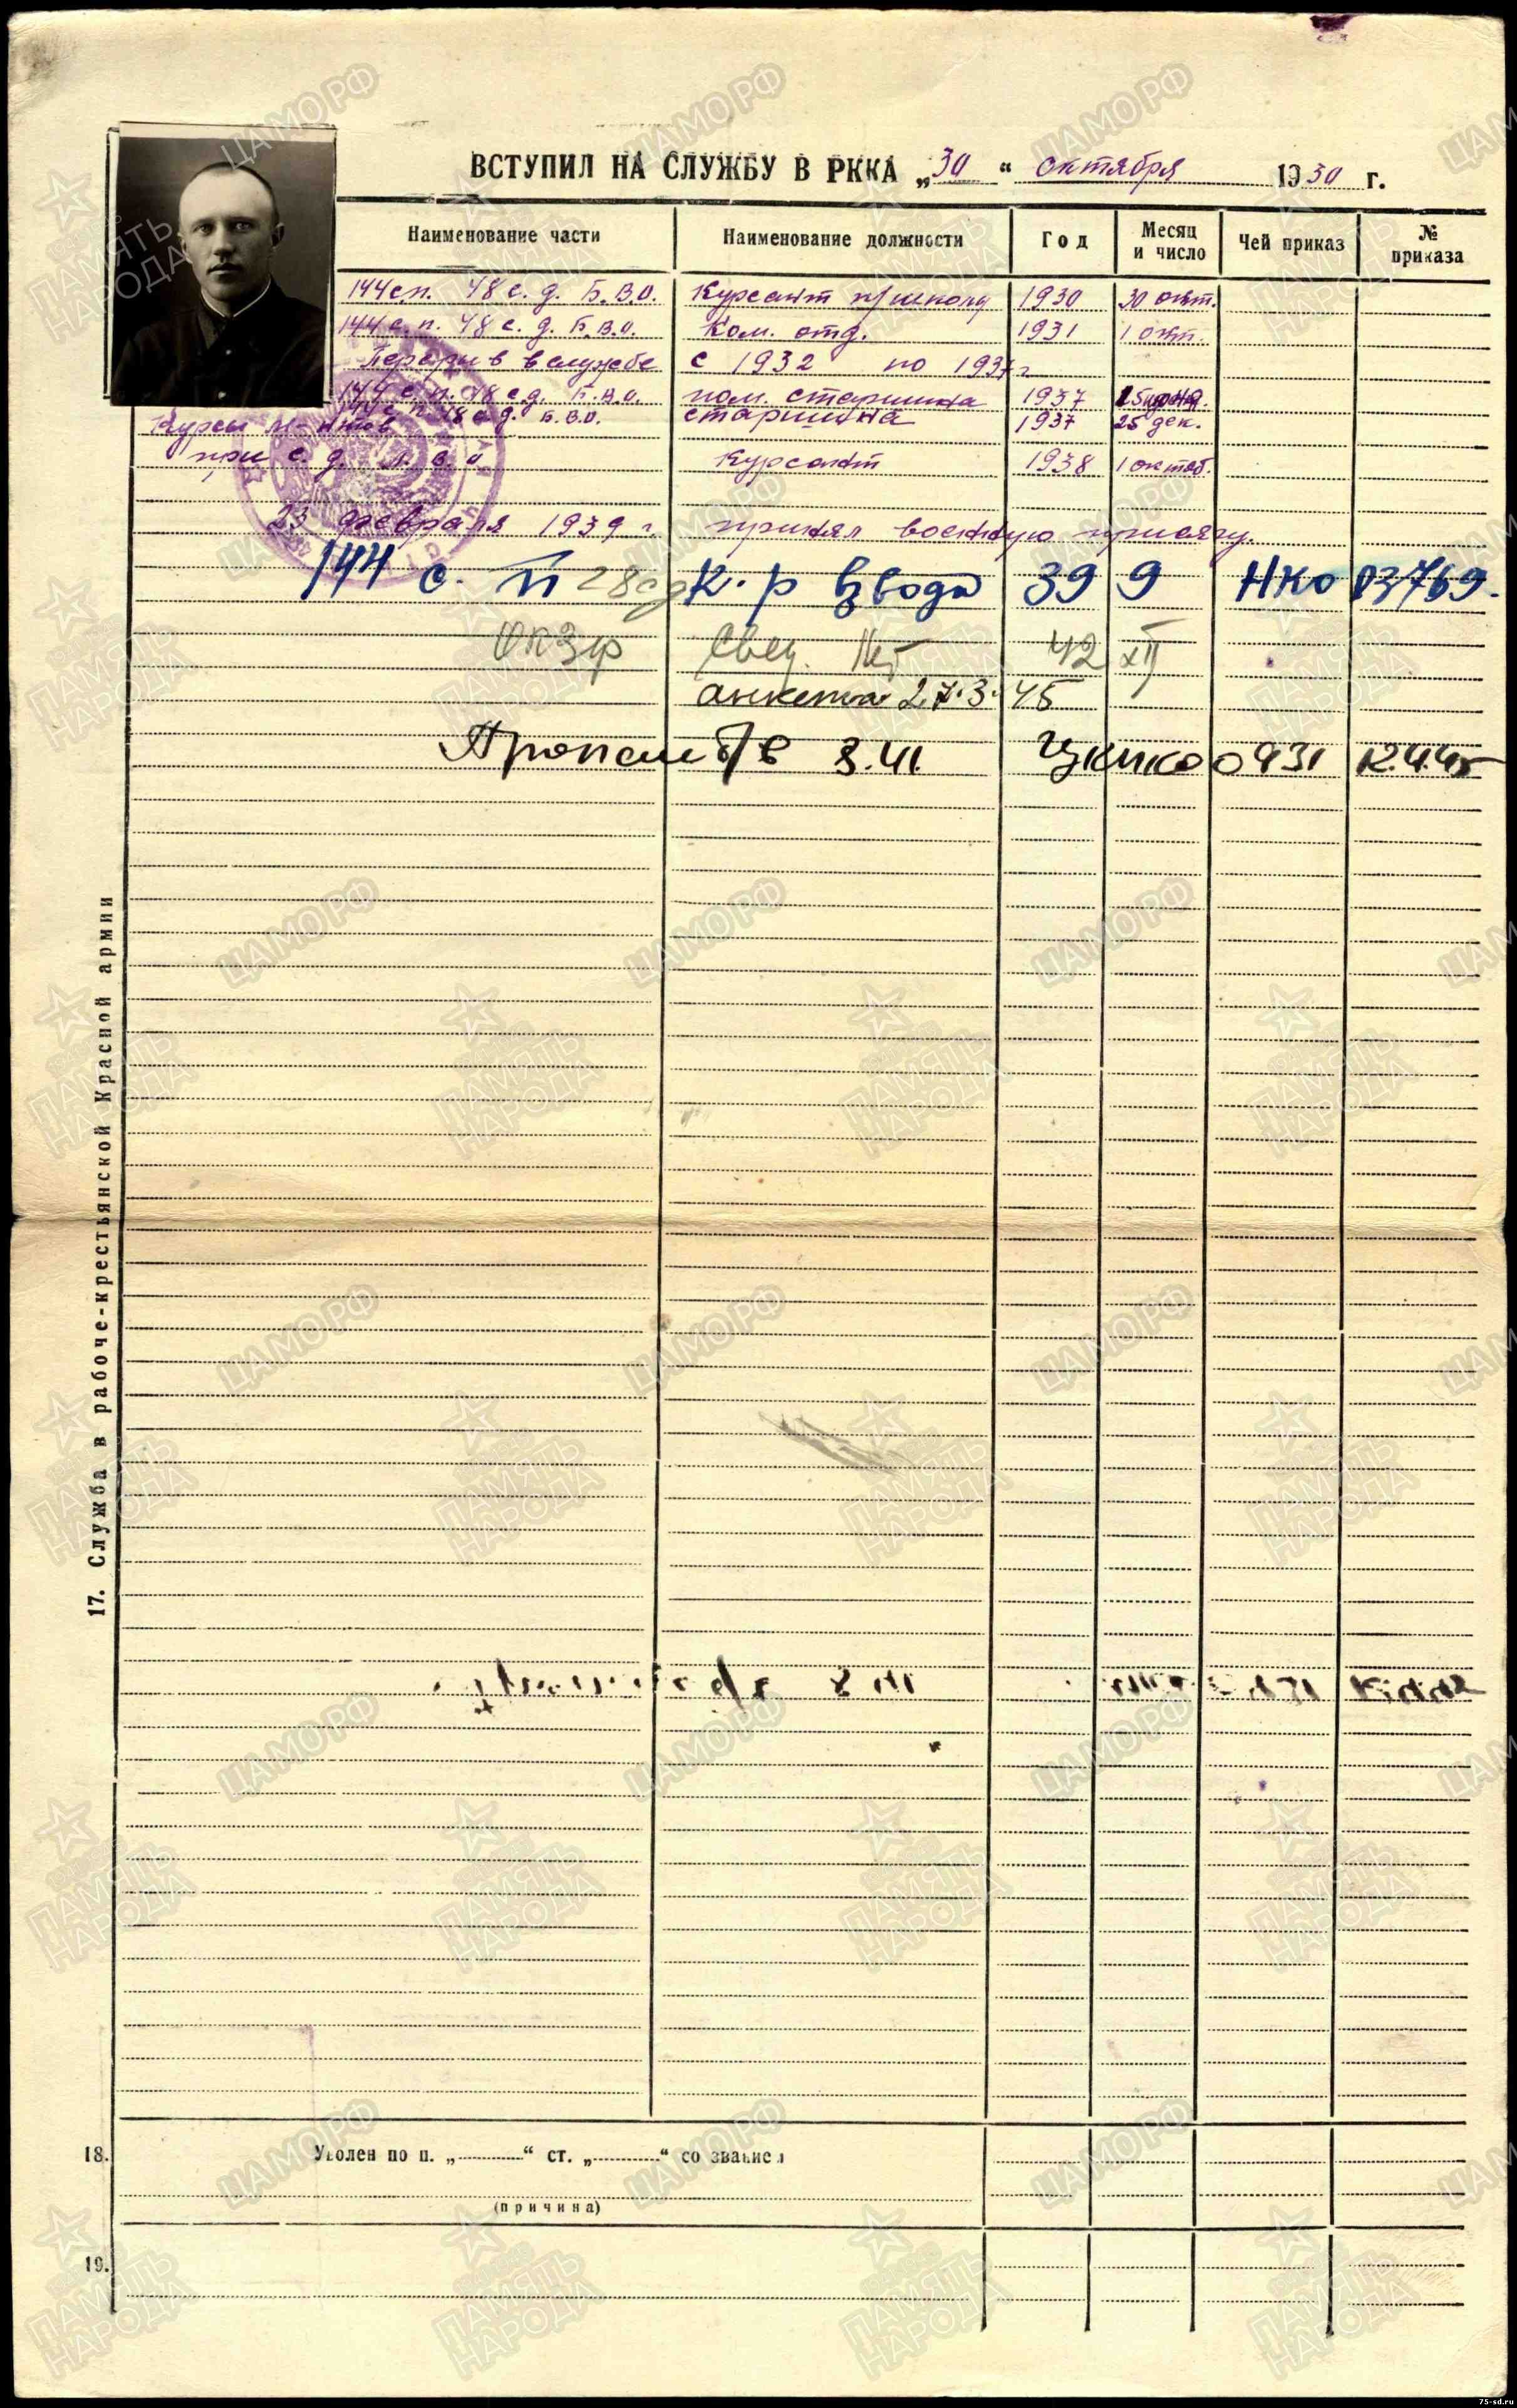 ВСТУПИЛ НА СЛУЖБУ В РККА „30“ октября 1930 г.
Наименование части Наименование должности Год Месяц и число Чей приказ № приказа
144 с.п. 48 с.д. Б.В.О. Курсант п/школы 1930 30 окт.
144 с.п. 48 с.д. Б.В.О. Ком. отд. 1931 1 окт.
Перерыв в службе с 1932 по 1937 г
144 с.п. 48 с.д. Б.В.О. пом. старшина 1937
144 с.п. 48 с.д. Б.В.О. старшина 1937 25 дек.
Курсы м-нтов
при с.д. Курсант 1938 1 октяб.
23 февраля 1939 г. принял военную присягу.
144 с. п К-р взвода 39 9 НКО 03769.
Свед. Нет 42 XII
анкета 27.3.45
Пропал б/в 8.41. 0931 12.4.45
17. Служба в рабоче-крестьянской Красной армии
18. Уволен по п. „ “ ст. „ “ со званием
(причина)
19.
ЦАМО РФ
ПАМЯТЬ НАРОДА
75-sd.ru